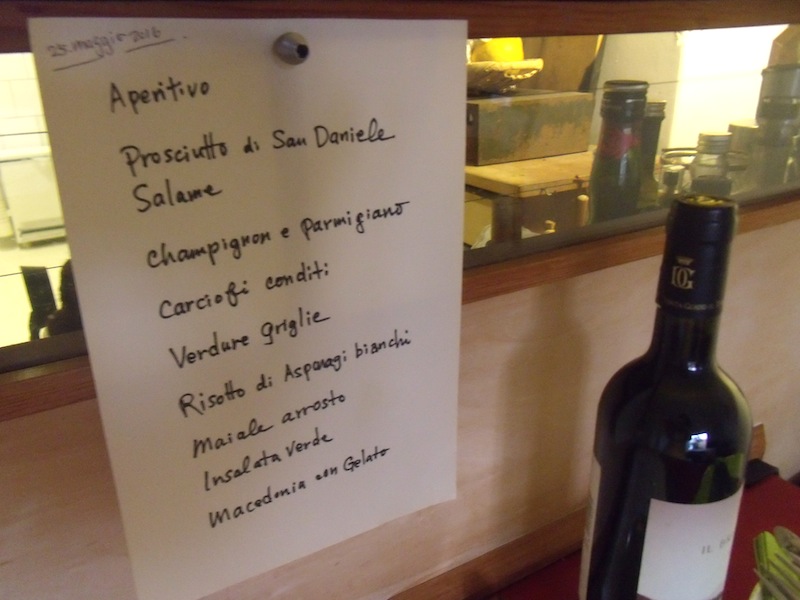 25. maggio 2016.
Aperitivo
Prosciutto di San Daniele
Salame
Champignon e Parmigiano
Carciofi conditi
Verdure griglie
Risotto di Asparagi bianchi
Maiale arrosto
Insalata verde
Macedonia con Gelato
DG
IL